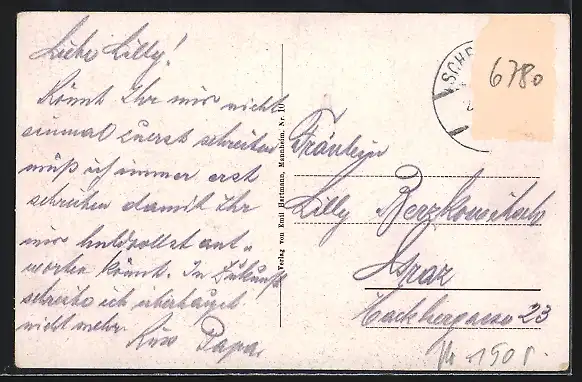 Liebe Lilly!
Könnt Ihr mir nicht
einmal zuerst schreiben
muß ich immer erst
schreiben damit Ihr
mir huldvollst ant-
worten könnt. In Zukunft
schreibe ich überhaupt
nicht mehr. Kuss Papa.
Verlag von Emil Hartmann, Mannheim. Nr. 10
SCHE
6780
Fräulein
Lilly
Graz
23